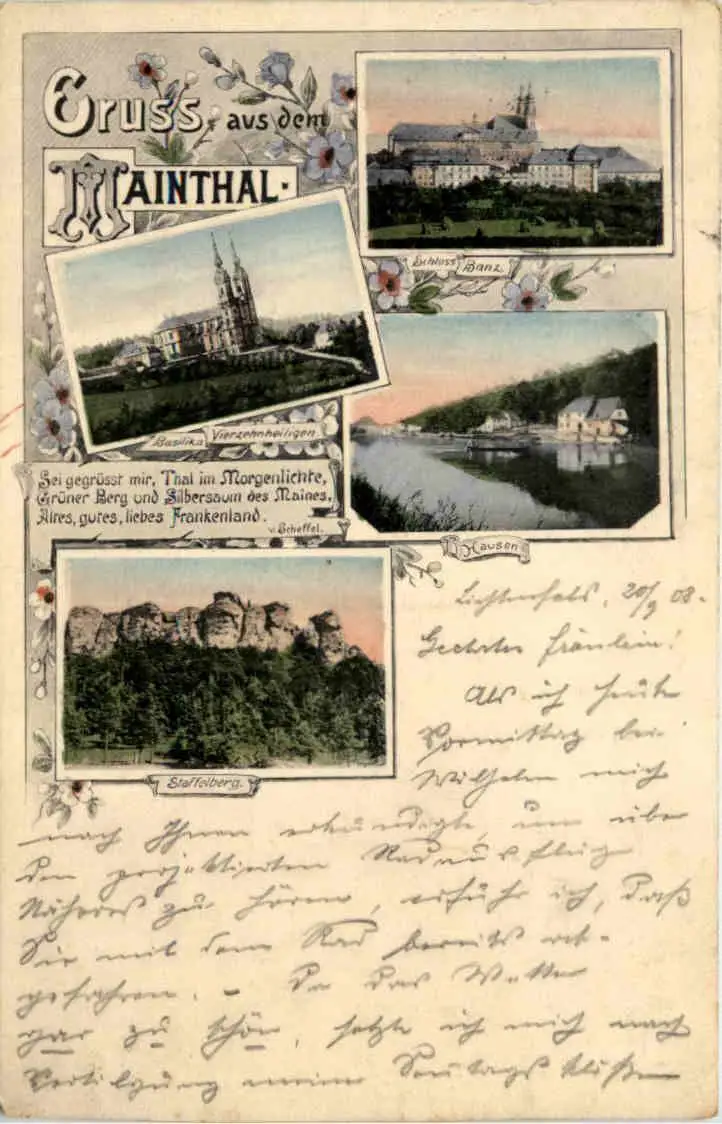 Gruss aus dem
MAINTHAL.
Schloss Banz
Basilika Vierzehnheiligen
Sei gegrüsst mir, Thal im Morgenlichte,
Grüner Berg und Silbersaum des Maines,
Altes, gutes, liebes Frankenland.
v. Scheffel.
Hausen
Staffelberg.
Lichtenfels, 20/9 08.
Geehrtes Fräulein!
Als ich heute
Vormittag bei
Wilhelm mich
nach Ihnen erkundigte, um über
den projektierten Radausflug
Näheres zu hören, erfuhr ich, daß
Sie mit dem Rad bereits ab-
gefahren. - Da das Wetter
gar zu schön, setzte ich mich nach
Vertilgung meiner Sonntags